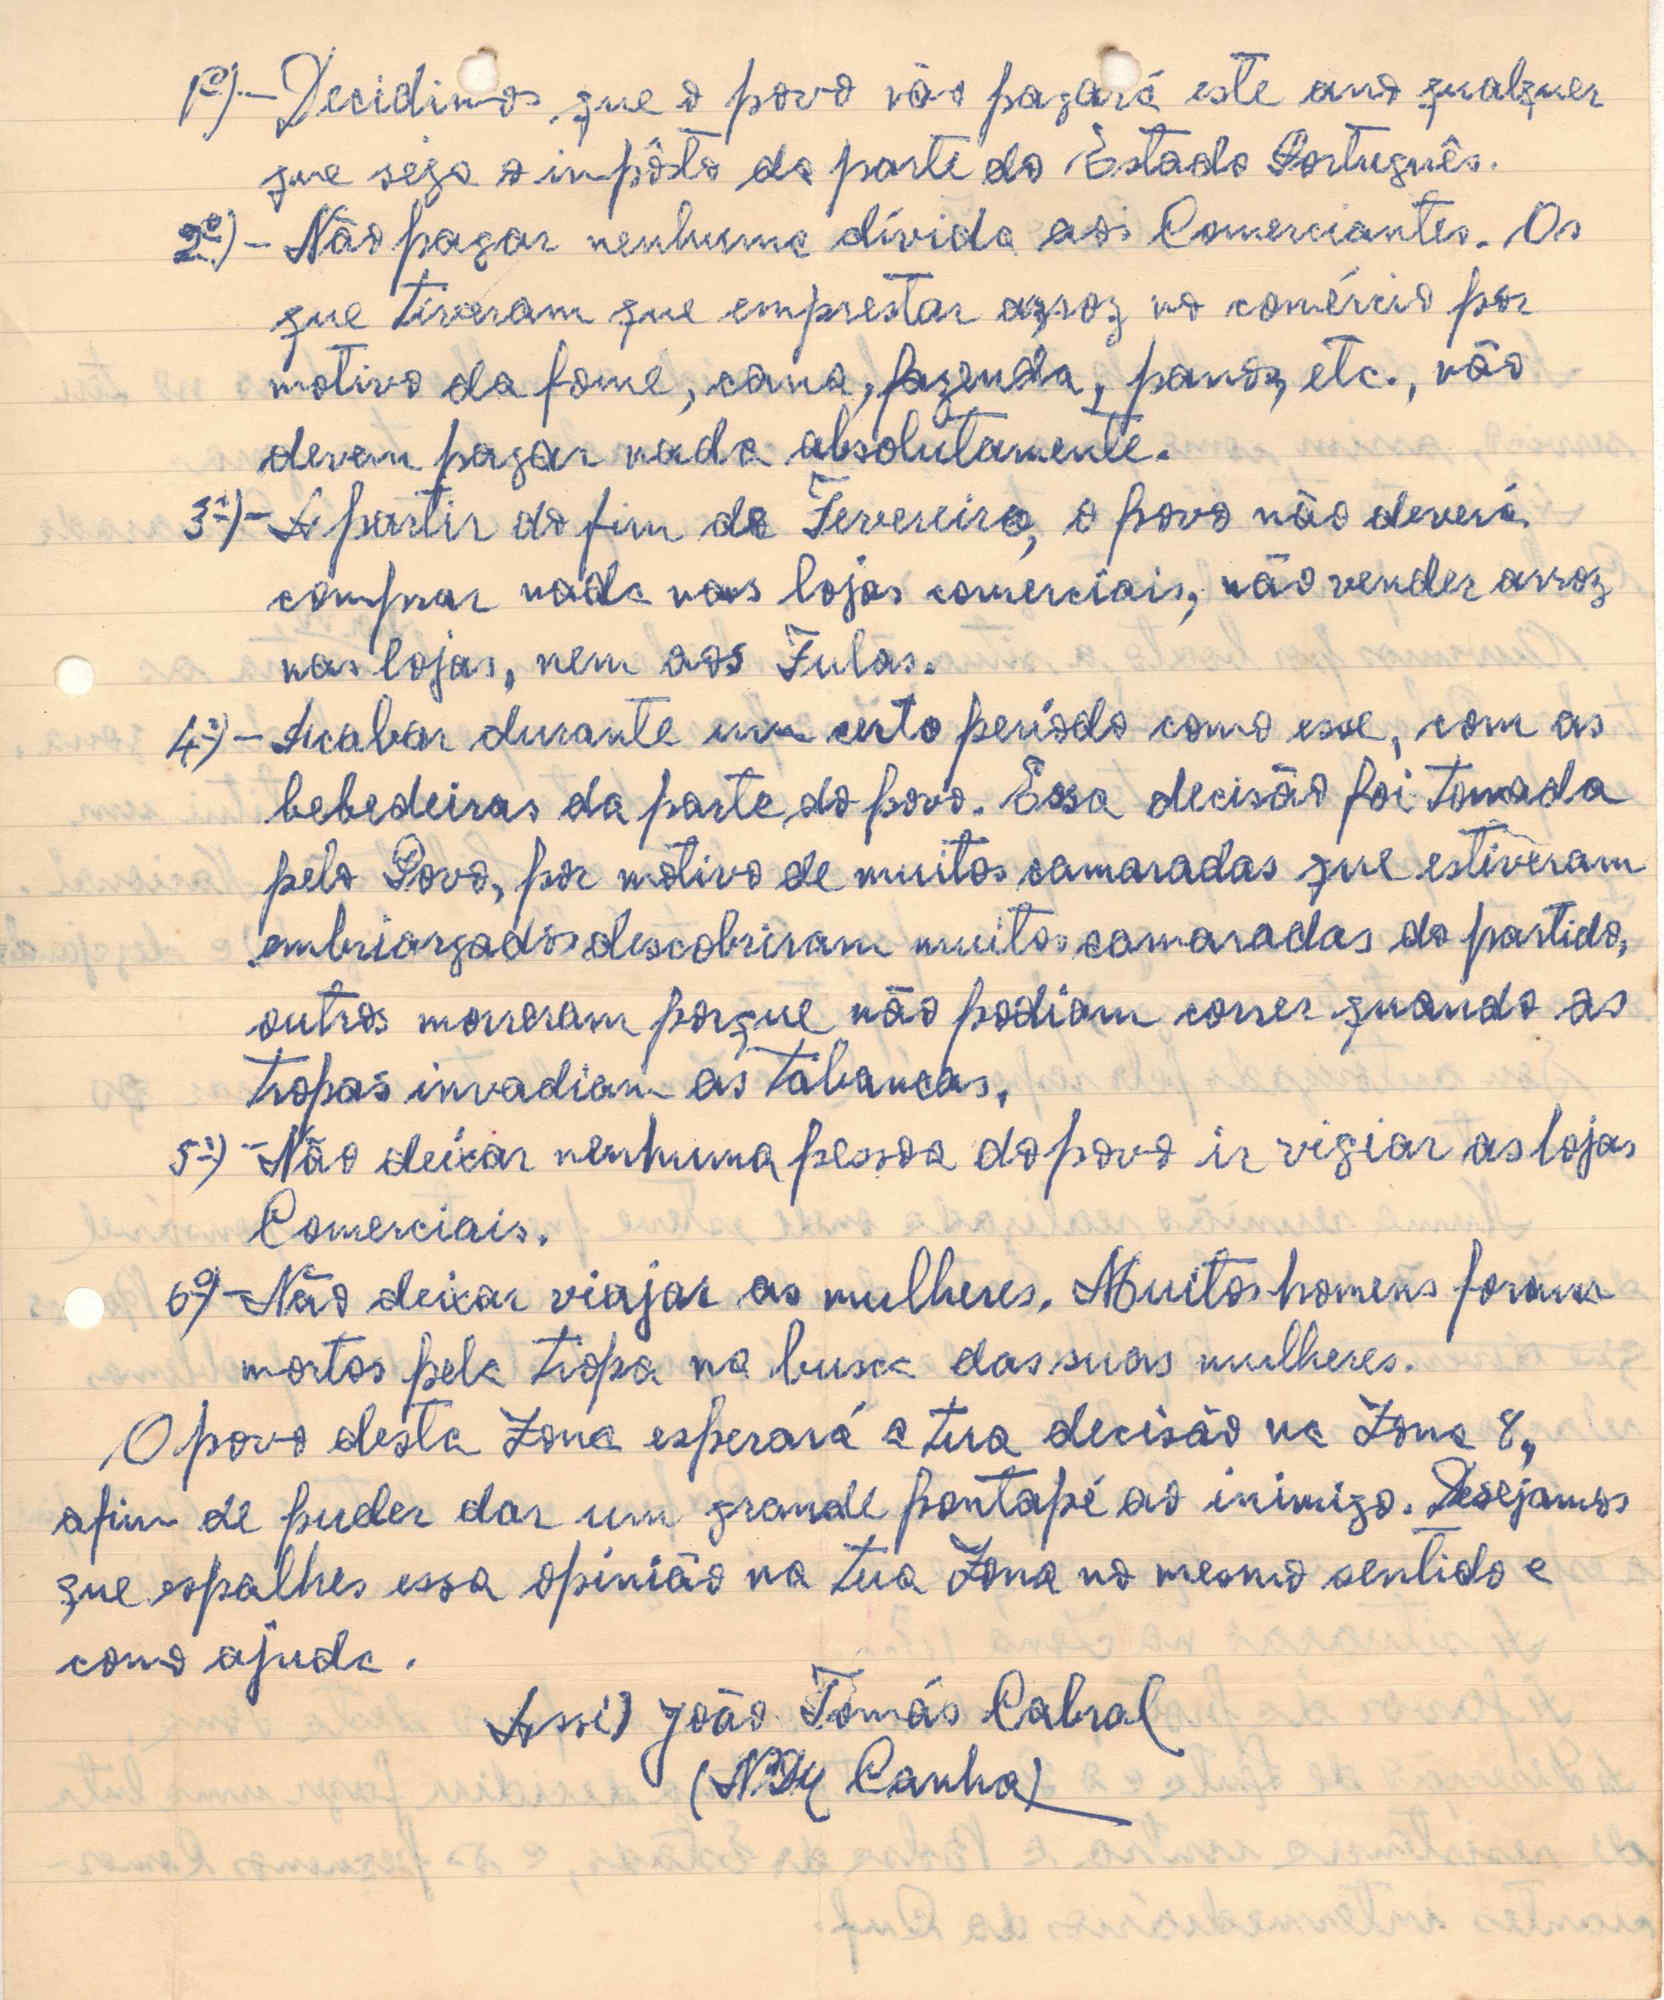 1º) - Decidimos que o povo não pagará este ano qualquer
que seja o impôsto da parte do Estado Português.
2º) - Não pagar nenhuma dívida aos Comerciantes. Os
que tiveram que emprestar arroz no comércio por
motivo da fome, cana, fazenda, panos, etc., não
devem pagar nada absolutamente.
3º) - A partir do fim de Fevereiro, o povo não deverá
comprar nada nas lojas comerciais, não vender arroz
nas lojas, nem aos Fulas.
4º) - Acabar durante um certo período como esse, com as
bebedeiras da parte do povo. Essa decisão foi tomada
pelo Povo, por motivo de muitos camaradas que estiveram
embriargados descobriram muitos camaradas do partido,
outros morreram porque não podiam correr quando as
tropas invadiam as tabancas.
5º) - Não deixar nenhuma pessoa do povo ir vigiar as lojas
Comerciais.
6º) - Não deixar viajar as mulheres. Muitos homens foram
mortos pela tropa na busca das suas mulheres.
O povo desta Zona esperará a tua decisão na Zona 8,
afim de puder dar um grande pontapé ao inimigo. Desejamos
que espalhes essa opinião na tua Zona no mesmo sentido e
como ajuda.
Assi) João Tomás Cabral
(N'Dy Canha)